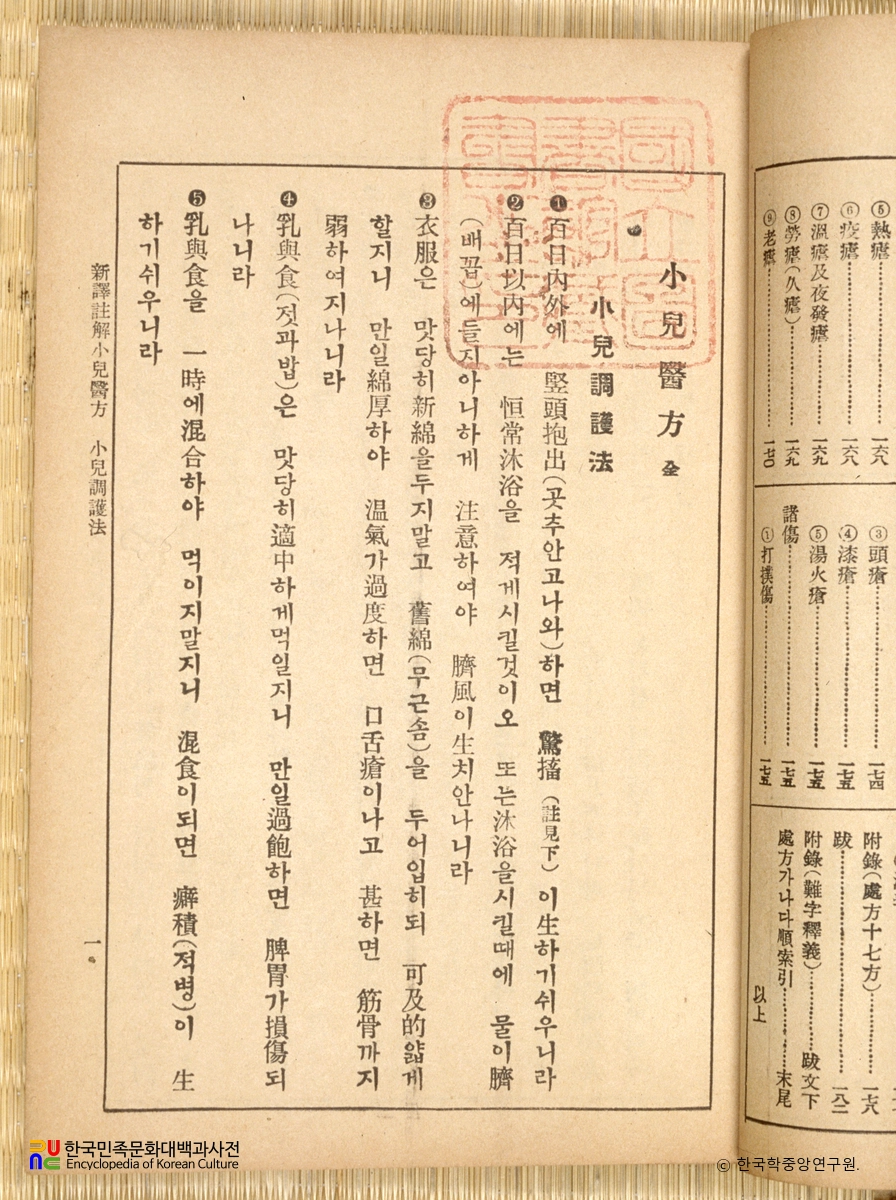 ⑤熱瘧……一六八
⑥疫瘧……一六八
⑦溫瘧及夜發瘧……一六九
⑧勞瘧(久瘧)……一六九
⑨老瘧……一七〇
③頭瘡……一七四
④漆瘡……一七五
⑤湯火瘡……一七五
諸傷……一七五
①打撲傷……一七五
附錄(處方十七方)……一七六
跋……一八二
附錄(難字釋義)……跋文下
處方가나다順索引……末尾
以上
小兒醫方 全
小兒調護法
❶百日內外에 竪頭抱出(곳추안고나와)하면 驚搐(註見下)이生하기쉬우니라
❷百日以內에는 恒常沐浴을 적게시킬것이오 또는沐浴을시킬때에 물이臍
(배꼽)에들지아니하게 注意하여야 臍風이生치안나니라
❸衣服은 맛당히新綿을두지말고 舊綿(무근솜)을 두어입히되 可及的얇게
할지니 만일綿厚하야 溫氣가過度하면 口舌瘡이나고 甚하면 筋骨까지
弱하여지나니라
❹乳與食(젓과밥)은 맛당히適中하게먹일지니 만일過飽하면 脾胃가損傷되
나니라
❺乳與食을 一時에混合하야 먹이지말지니 混食이되면 癖積(적병)이 生
하기쉬우니라
新譯註解小兒醫方 小兒調護法
一
한국민족문화대백과사전
Encyclopedia of Korean Culture
ⓒ 한국학중앙연구원.